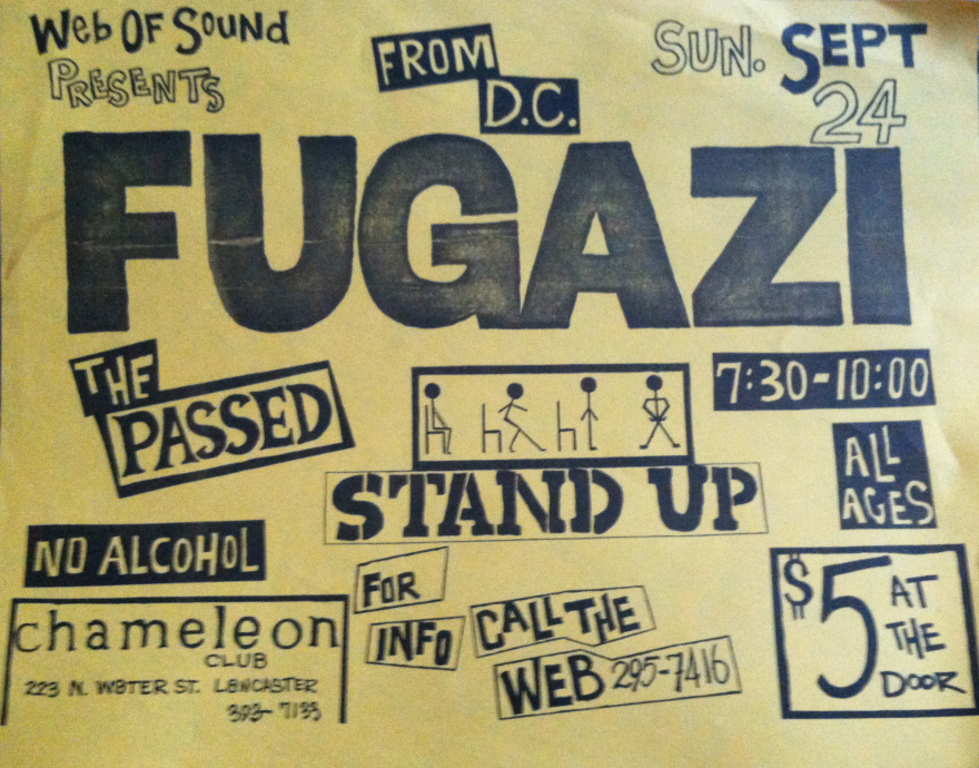 Web Of Sound
Presents
FROM
D.C.
SUN. SEPT
24
FUGAZI
THE
PASSED
STAND UP
7:30-10:00
ALL
AGES
NO ALCOHOL
chameleon
CLUB
223 N. WATER ST. LANCASTER
393-7133
FOR
INFO
CALL THE
WEB 295-7416
$5 AT
THE
DOOR